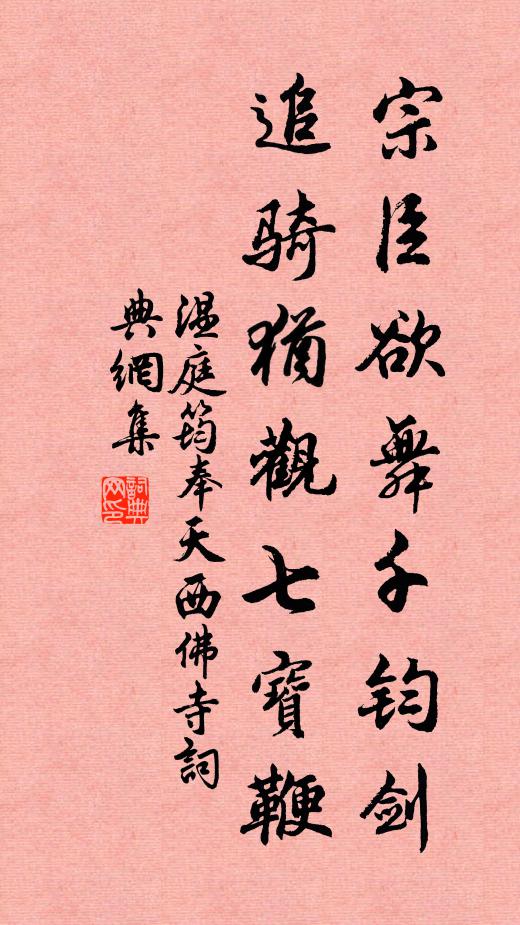 宗臣欲舞千钧剑
追骑猶觀七寶鞭
温庭筠奉天西佛寺詞
典網集
詞典网印